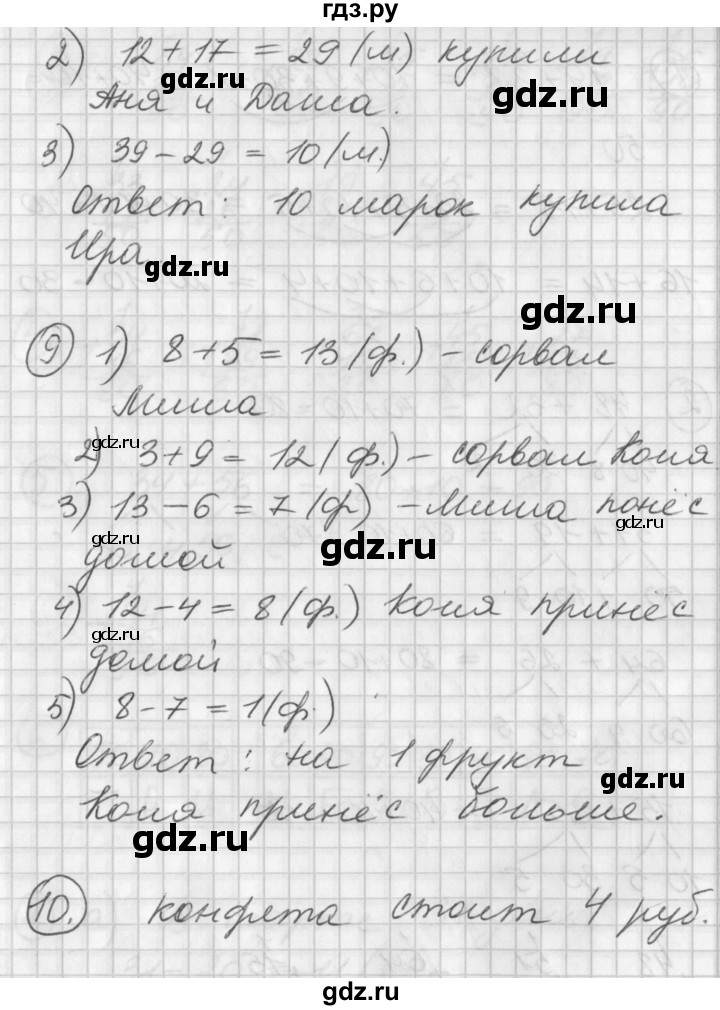 гдз.ру
2) 12 + 17 = 29 (м) купили
Аня и Даша.
gdz.ru
gdz.ru
3) 39 - 29 = 10 (м.)
Ответ: 10 марок купила
Ира
gdz.ru
gdz.ru
9 1) 8 + 5 = 13 (ф.) - сорвал
Миша
gdz.ru
gdz.ru
2) 3 + 9 = 12 (ф.) - сорвал Коля
3) 13 - 6 = 7 (ф) - Миша понёс
gdz.ru
gdz.ru
домой
gdz.ru
4) 12 - 4 = 8 (ф.) Коля принёс
gdz.ru
домой
5) 8 - 7 = 1 (ф.)
Ответ: на 1 фрукт
gdz.ru
Коля принёс больше.
gdz.ru
gdz.ru
10. конфета стоит 4 руб.
gdz.ru